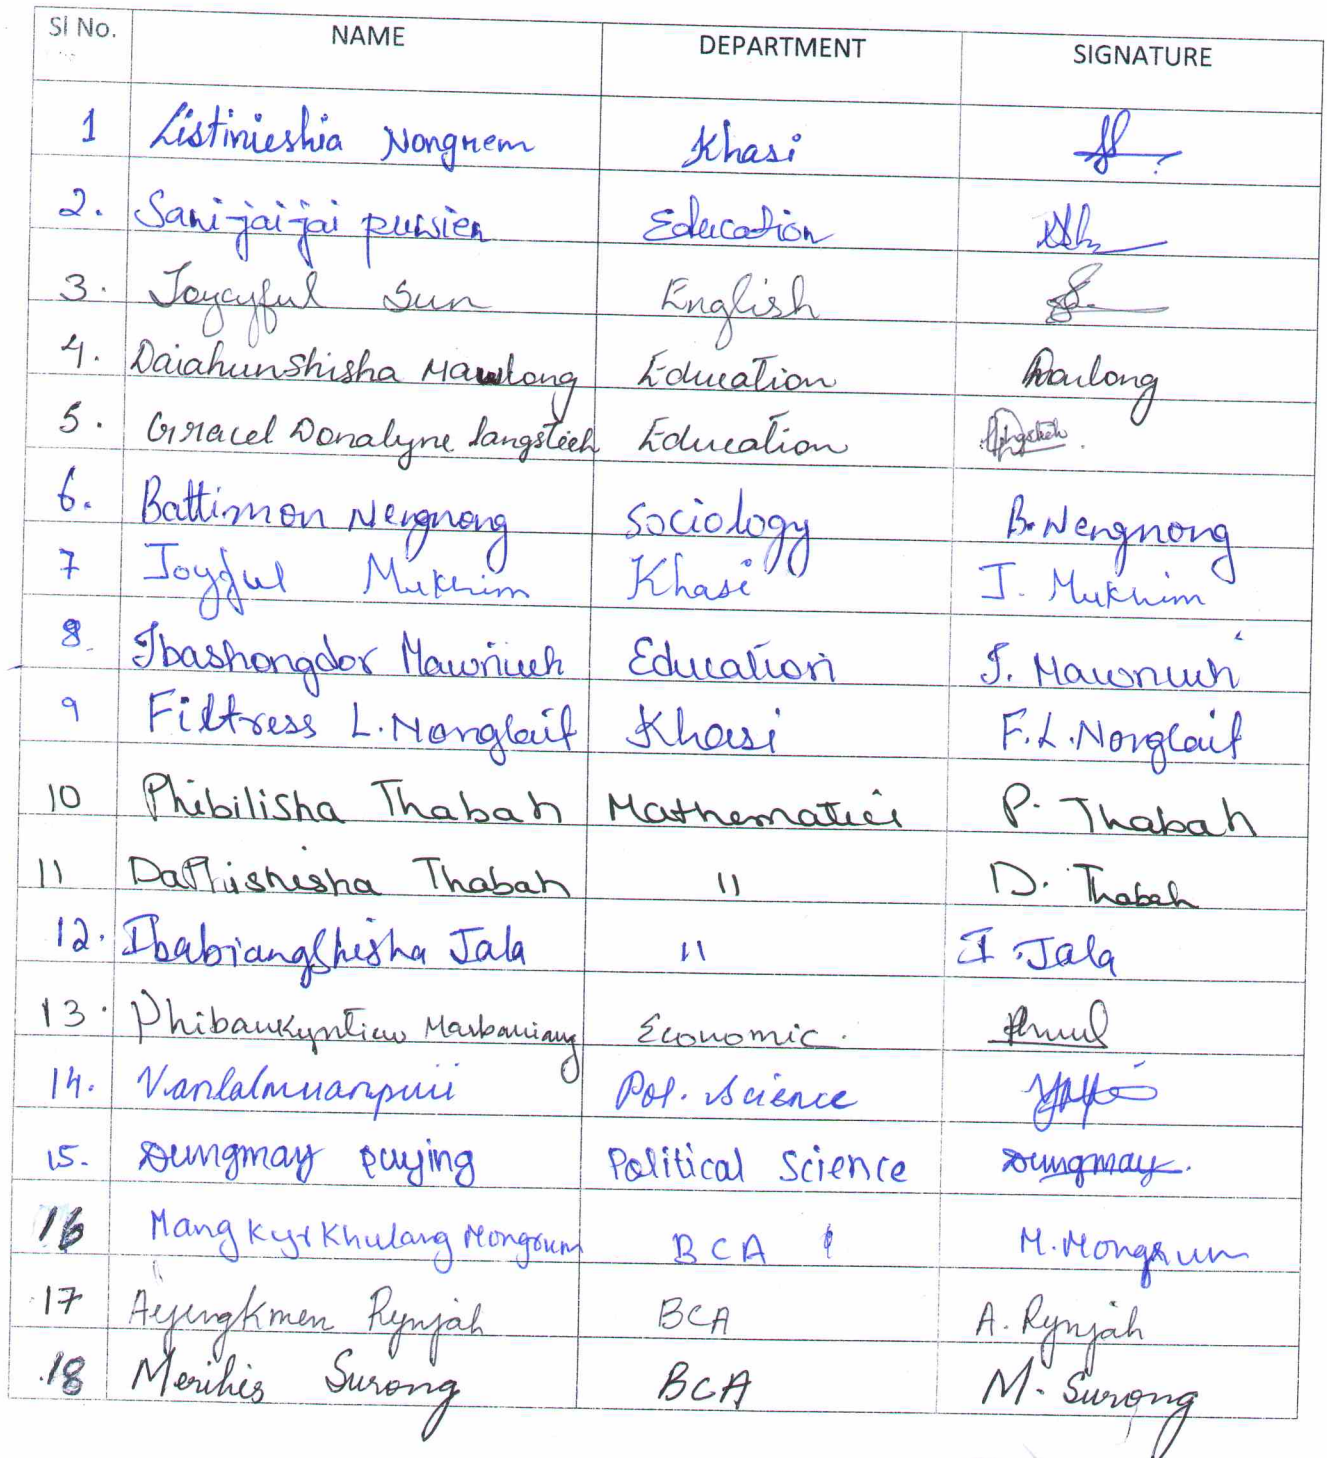 Sl No. NAME DEPARTMENT SIGNATURE
1 Listinieshia Nongrem Khasi
2. Sani-jai-jai puwien Education
3. Joycyful Sun English
4. Daiahunshisha Mawlong Education Mawlong
5. Gracel Donalyne Langstieh Education
6. Battimon Nengnong Sociology B. Nengnong
7 Joyful Mukhim Khasi J. Mukhim
8. Ibashongdor Mawniuh Education I. Mawniuh
9 Filtress L. Nonglait Khasi F.L. Nonglait
10 Phibilisha Thabah Mathematics P. Thabah
11 Daphishisha Thabah 11 D. Thabah
12. Ibabiangshisha Jala 11 I. Jala
13. Phibankyntiew Marbaniang Economic.
14. Vanlalmuanpuii Pol. Science
15. Dungmay puying Political Science Dungmay.
16 Mang Kyrkhulang Mongsum BCA M. Mongsum
17 Ayengkmen Rynjah BCA A. Rynjah
18 Merihis Surong BCA M. Surong